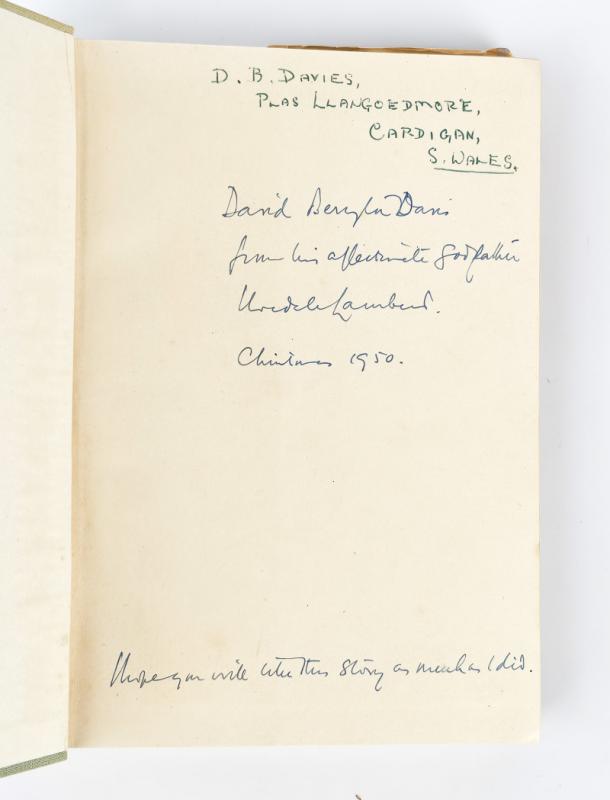 D. B. DAVIES,
PLAS LLANGOEDMORE,
CARDIGAN,
S. WALES.
David Davis
from his affectionate godfather
Uvedale Lambert.
Christmas 1950.
I hope you will like this story as much as I did.